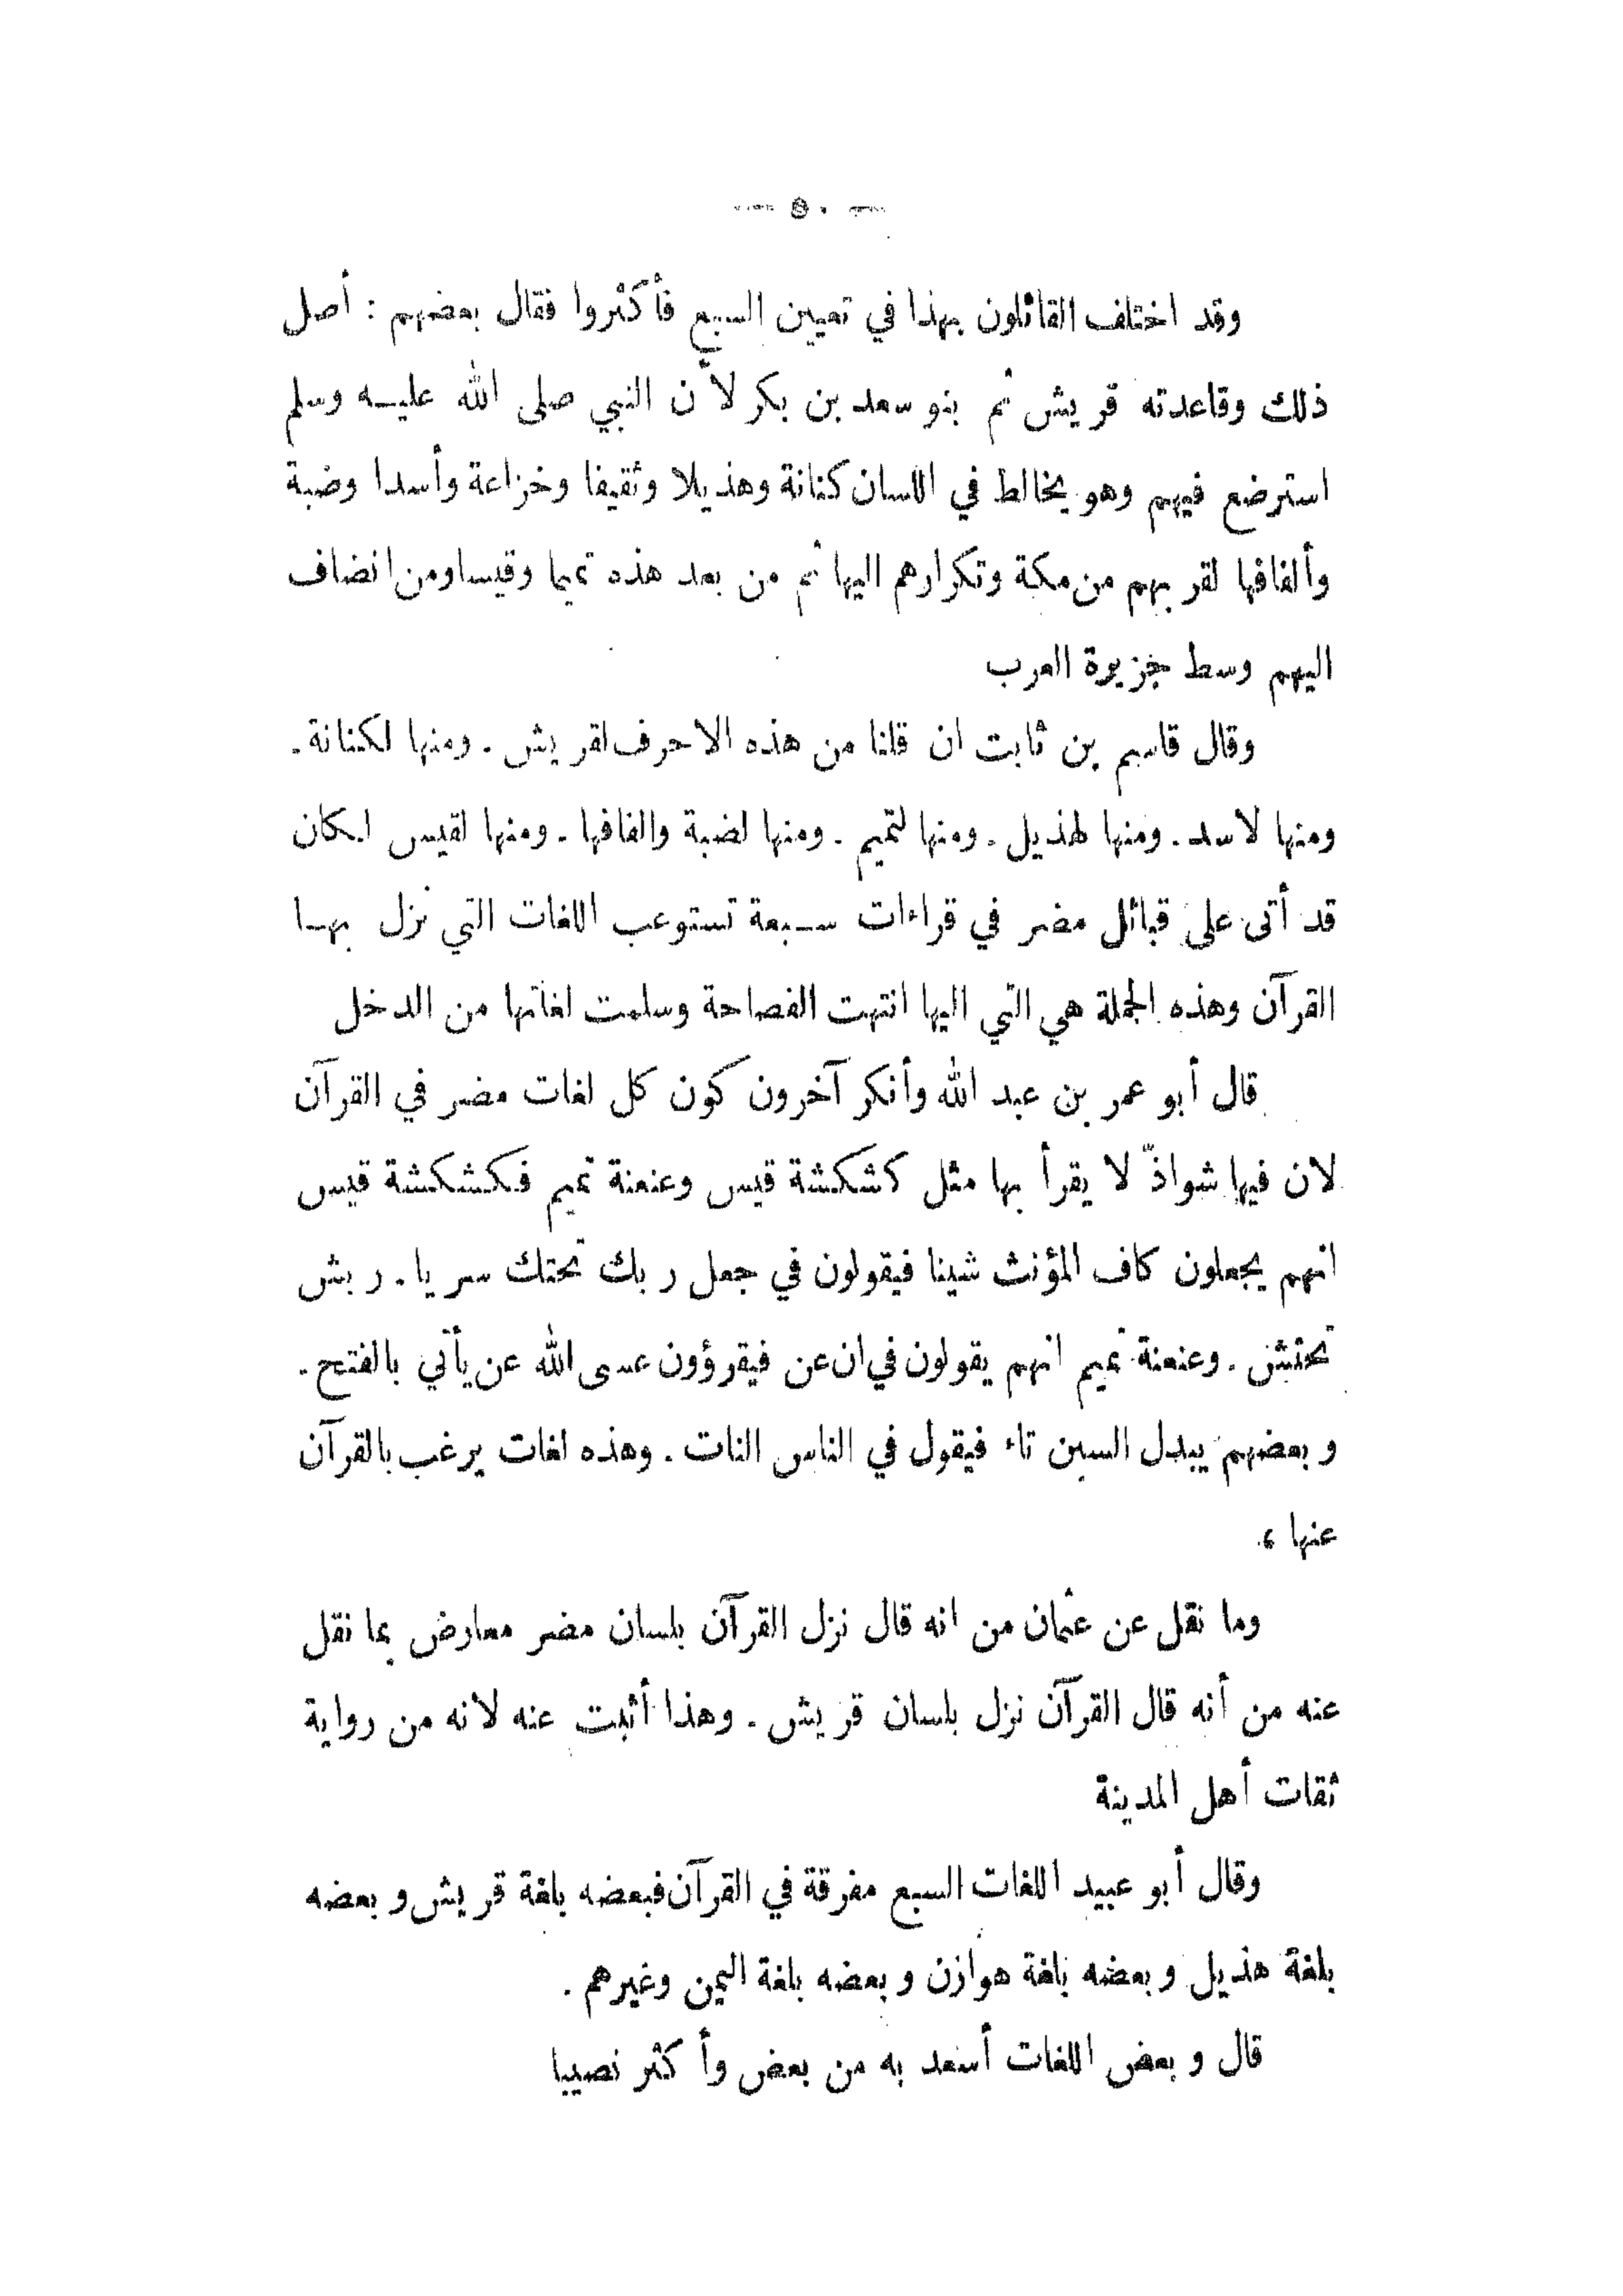 — ٥٠ —
وقد اختلف القائلون بهذا في تعيين السبع فأكثروا فقال بعضهم : أصل
ذلك وقاعدته قريش ثم بنو سعد بن بكر لأن النبي صلى الله عليه وسلم
استرضع فيهم وهو يخالط في اللسان كنانة وهذيلا وثقيفا وخزاعة وأسدا وضبة
وألفافها لقربهم من مكة وتكرارهم اليها ثم من بعد هذه تميما وقيسا ومن انضاف
اليهم وسط جزيرة العرب
وقال قاسم بن ثابت ان قلنا من هذه الاحرف لقريش . ومنها لكنانة .
ومنها لاسد . ومنها لهذيل . ومنها لتميم . ومنها لضبة والفافها . ومنها لقيس لكان
قد أتى على قبائل مضر في قراءات سبعة تستوعب اللغات التي نزل بها
القرآن وهذه الجملة هي التي اليها انتهت الفصاحة وسلمت لغاتها من الدخل
قال أبو عمر بن عبد الله وأنكر آخرون كون كل لغات مضر في القرآن
لان فيها شواذّ لا يقرأ بها مثل كشكشة قيس وعنعنة تميم فكشكشة قيس
انهم يجعلون كاف المؤنث شينا فيقولون في جعل ربك تحتك سريا . ربش
تحتش . وعنعنة تميم انهم يقولون في ان عن فيقرؤون عسى الله عن يأتي بالفتح .
وبعضهم يبدل السين تاء فيقول في الناس النات . وهذه لغات يرغب بالقرآن
عنها ،
وما نقل عن عثمان من انه قال نزل القرآن بلسان مضر معارض بما نقل
عنه من أنه قال القرآن نزل بلسان قريش . وهذا أثبت عنه لانه من رواية
ثقات أهل المدينة
وقال أبو عبيد اللغات السبع مفرقة في القرآن فبعضه بلغة قريش وبعضه
بلغة هذيل وبعضه بلغة هوازن وبعضه بلغة اليمن وغيرهم .
قال وبعض اللغات أسعد به من بعض وأكثر نصيبا